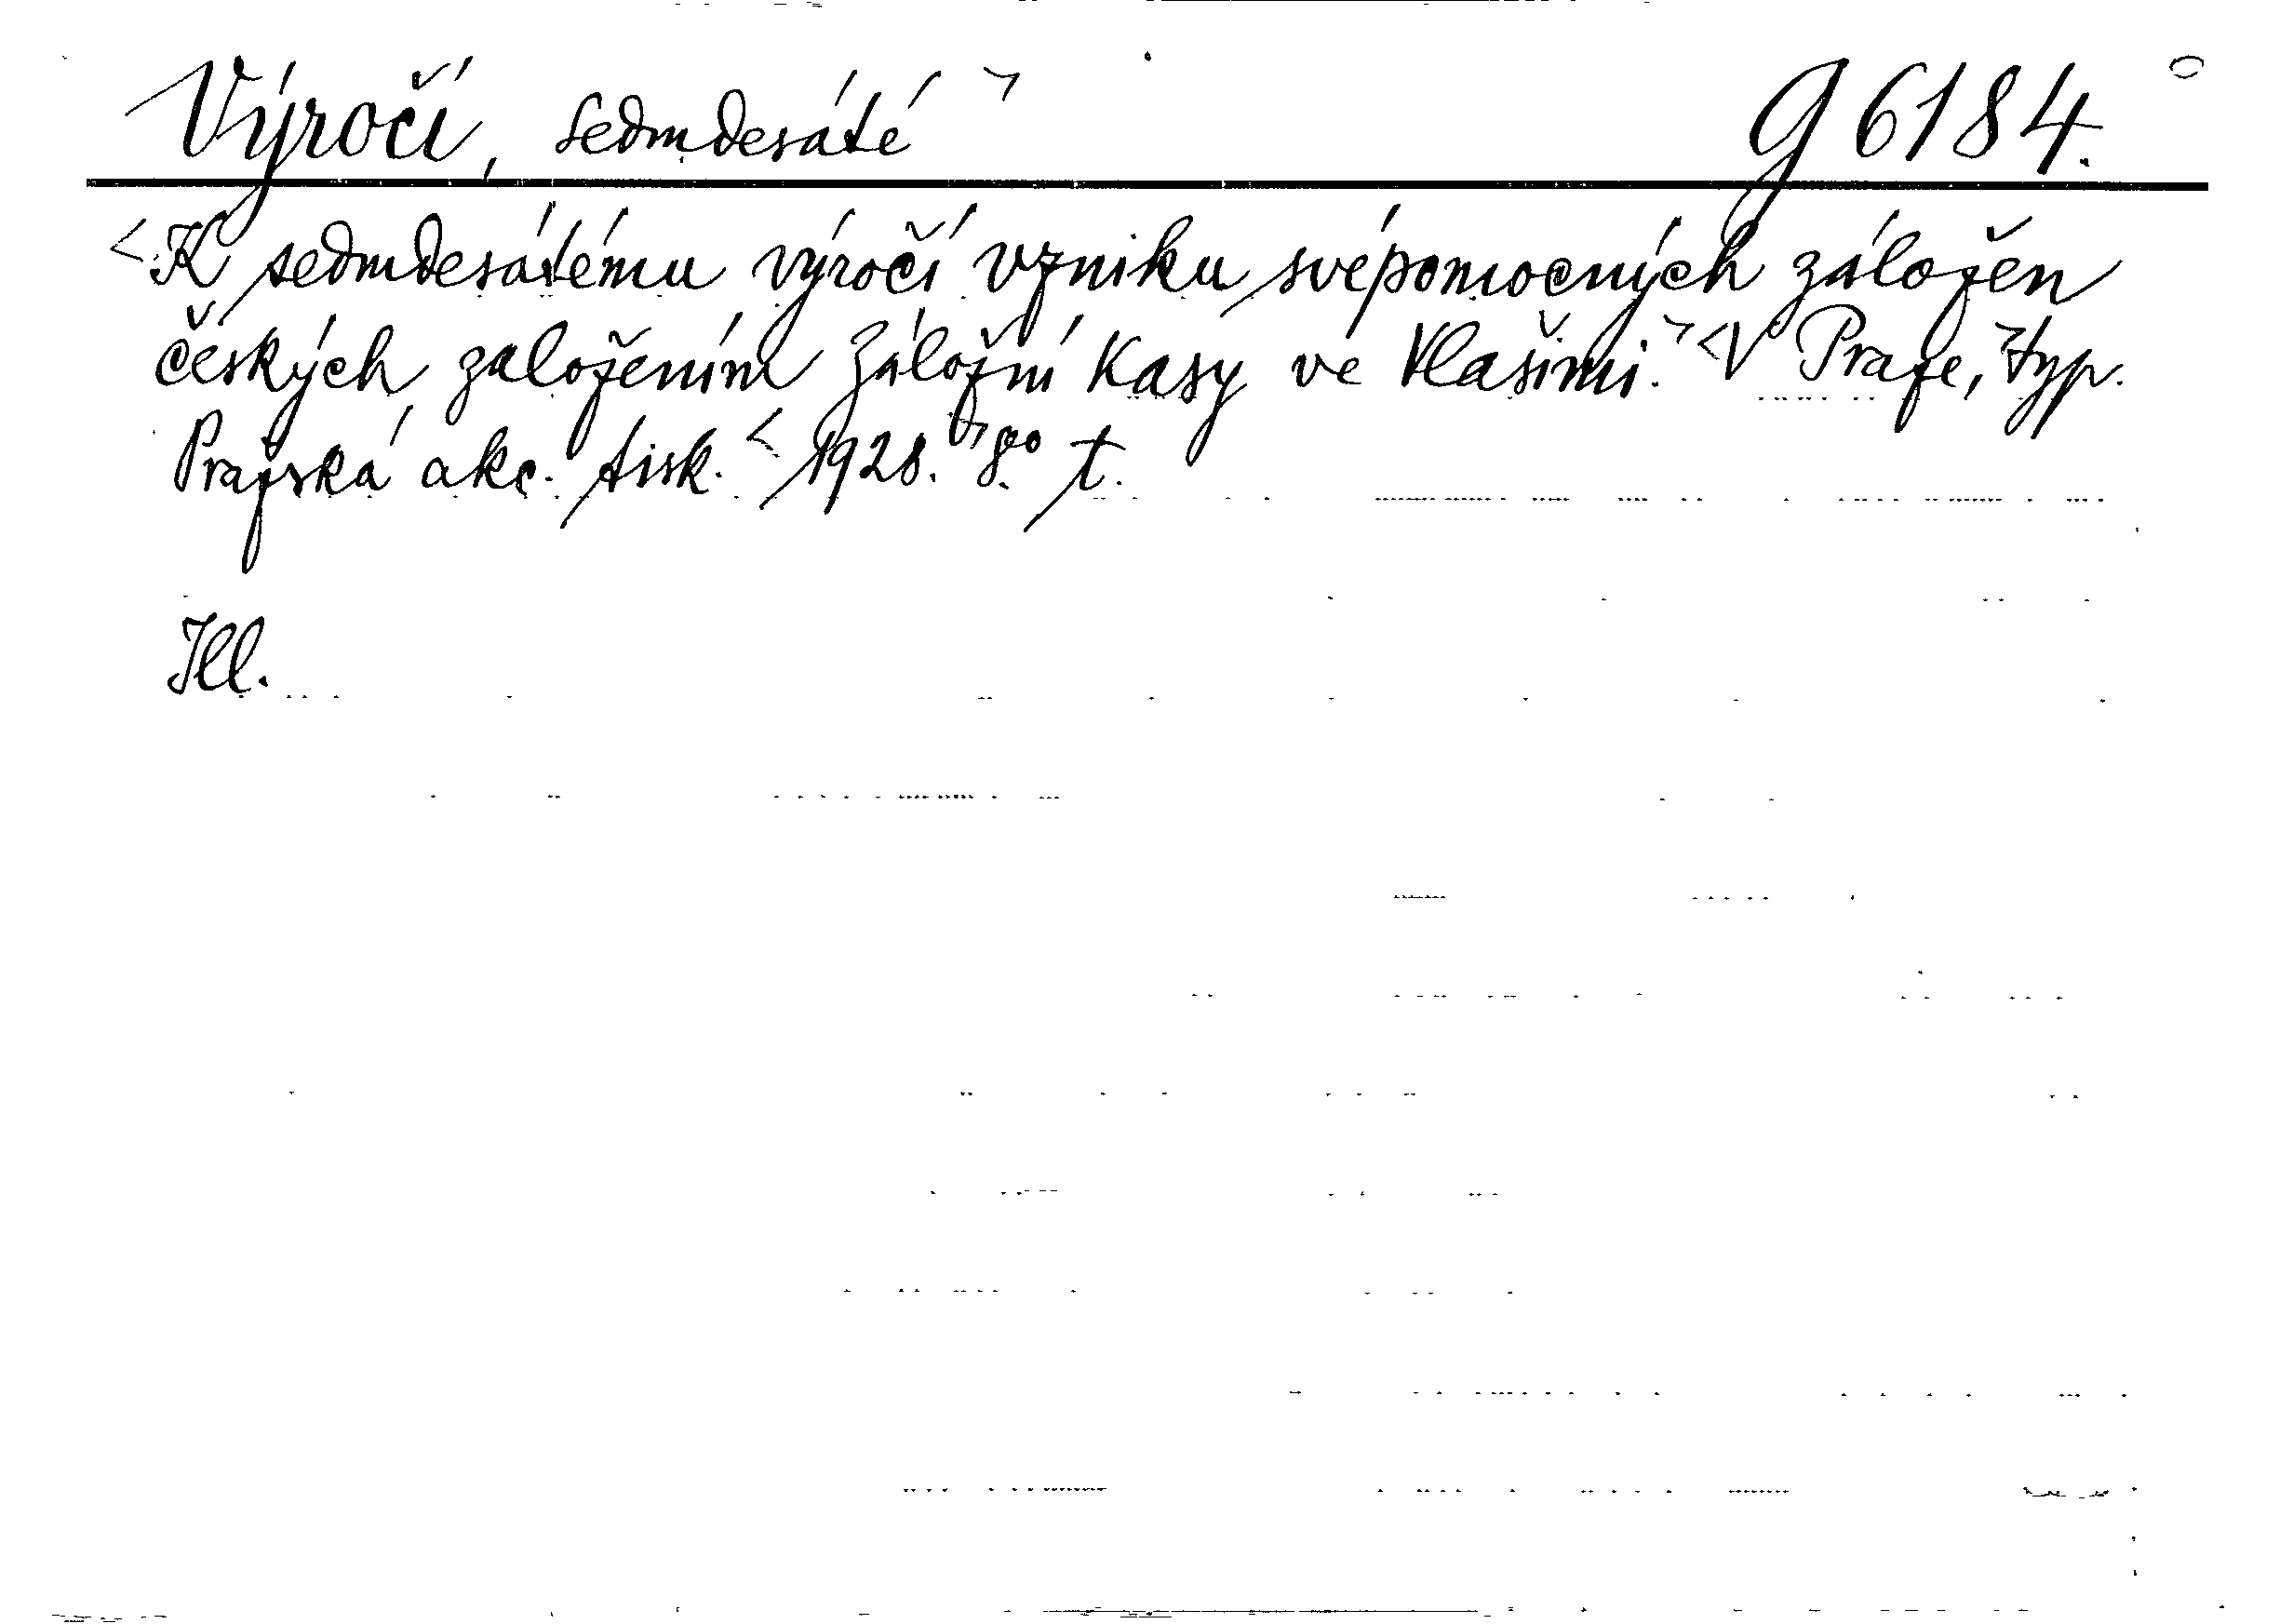 Výročí, sedmdesáté > g 6184.
<K sedmdesátému výročí vzniku svépomocných záložen
českých založením Záložní kasy ve Vlašimi.> <V Praze,> typ.
Pražská akc. tisk. <1928.> 8.° t.
Ill.